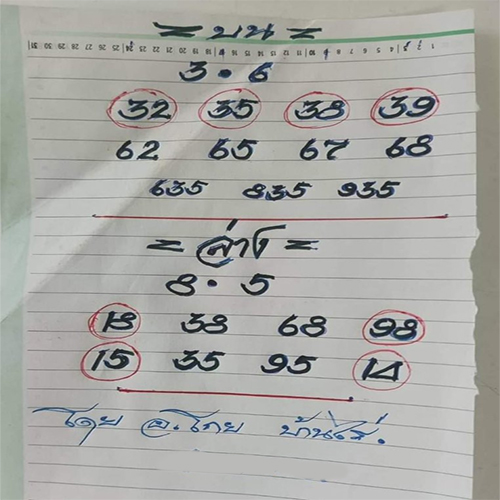 = บน =
3 • 6
32 35 38 39
62 65 67 68
635 835 935
= ล่าง =
8 • 5
18 38 68 98
15 35 95 14
โดย อ.โภย บ้านไร่.